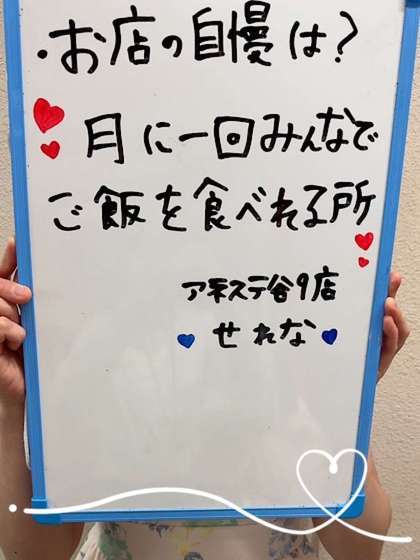 ・お店の自慢は？
月に一回みんなで
ご飯を食べれる所
アネステ谷9店
せれな